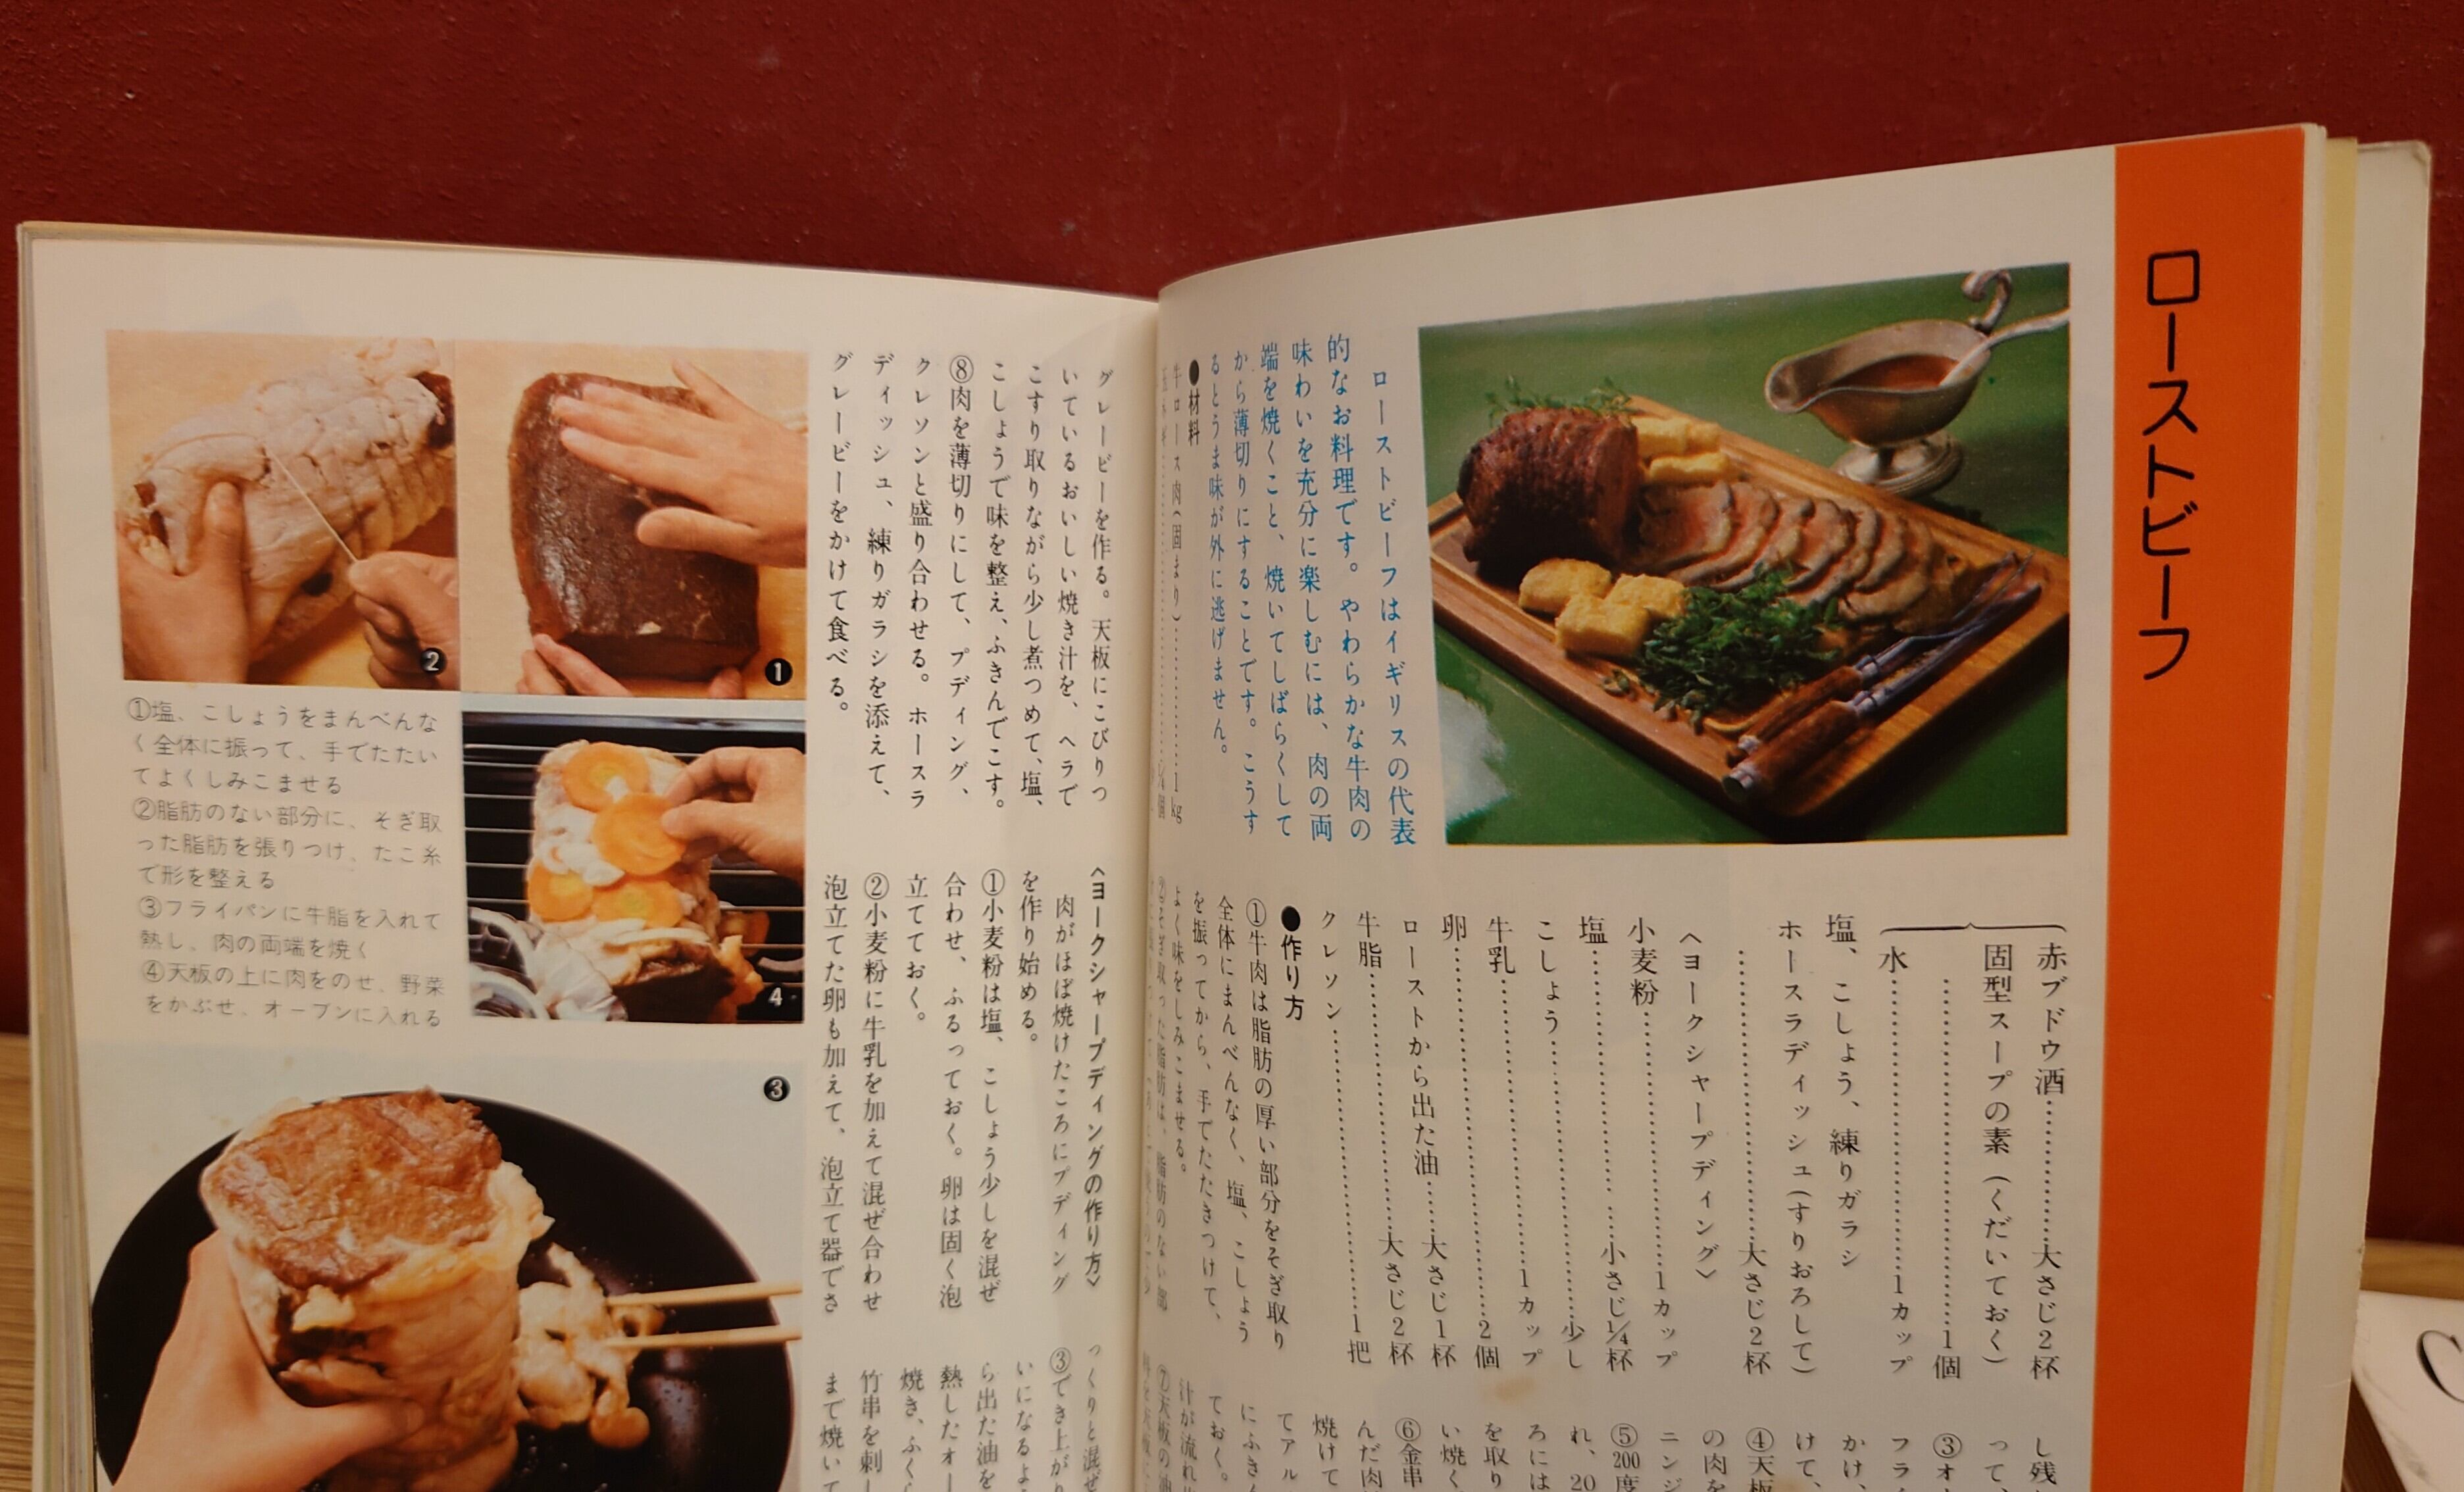 ローストビーフ
ローストビーフはイギリスの代表
的なお料理です。やわらかな牛肉の
味わいを充分に楽しむには、肉の両
端を焼くこと、焼いてしばらくして
から薄切りにすることです。こうす
るとうま味が外に逃げません。
●材料
牛ロース肉(固まり)…………1kg
赤ブドウ酒…………大さじ2杯
固型スープの素(くだいておく)
…………1個
水…………1カップ
塩、こしょう、練りガラシ
ホースラディッシュ(すりおろして)
…………大さじ2杯
〈ヨークシャープディング〉
小麦粉…………1カップ
塩…………小さじ¼杯
こしょう…………少し
牛乳…………1カップ
卵…………2個
ローストから出た油……大さじ1杯
牛脂…………大さじ2杯
クレソン…………1把
●作り方
①牛肉は脂肪の厚い部分をそぎ取り
全体にまんべんなく、塩、こしょう
を振ってから、手でたたきつけて、
よく味をしみこませる。
②そぎ取った脂肪は、脂肪のない部
し残
って、
③オ
フライ
かけ、
けて、
④天板
の肉を
ニンジ
⑤200度
れ、20
ろには
を取り
い焼く
⑥金串
んだ肉
焼けて
てアル
にふき
ておく。
汁が流れ
⑦天板の油
グレービーを作る。天板にこびりつ
いているおいしい焼き汁を、ヘラで
こすり取りながら少し煮つめて、塩、
こしょうで味を整え、ふきんでこす。
⑧肉を薄切りにして、プディング、
クレソンと盛り合わせる。ホースラ
ディッシュ、練りガラシを添えて、
グレービーをかけて食べる。
〈ヨークシャープディングの作り方〉
肉がほぼ焼けたころにプディング
を作り始める。
①小麦粉は塩、こしょう少しを混ぜ
合わせ、ふるっておく。卵は固く泡
立てておく。
②小麦粉に牛乳を加えて混ぜ合わせ
泡立てた卵も加えて、泡立て器でさ
っくりと混ぜ
③でき上が
いになるよ
ら出た油を
熱したオー
焼き、ふくら
竹串を刺し
まで焼いて
1
2
①塩、こしょうをまんべんな
く全体に振って、手でたたい
てよくしみこませる
②脂肪のない部分に、そぎ取
った脂肪を張りつけ、たこ糸
で形を整える
③フライパンに牛脂を入れて
熱し、肉の両端を焼く
④天板の上に肉をのせ、野菜
をかぶせ、オーブンに入れる
4
3